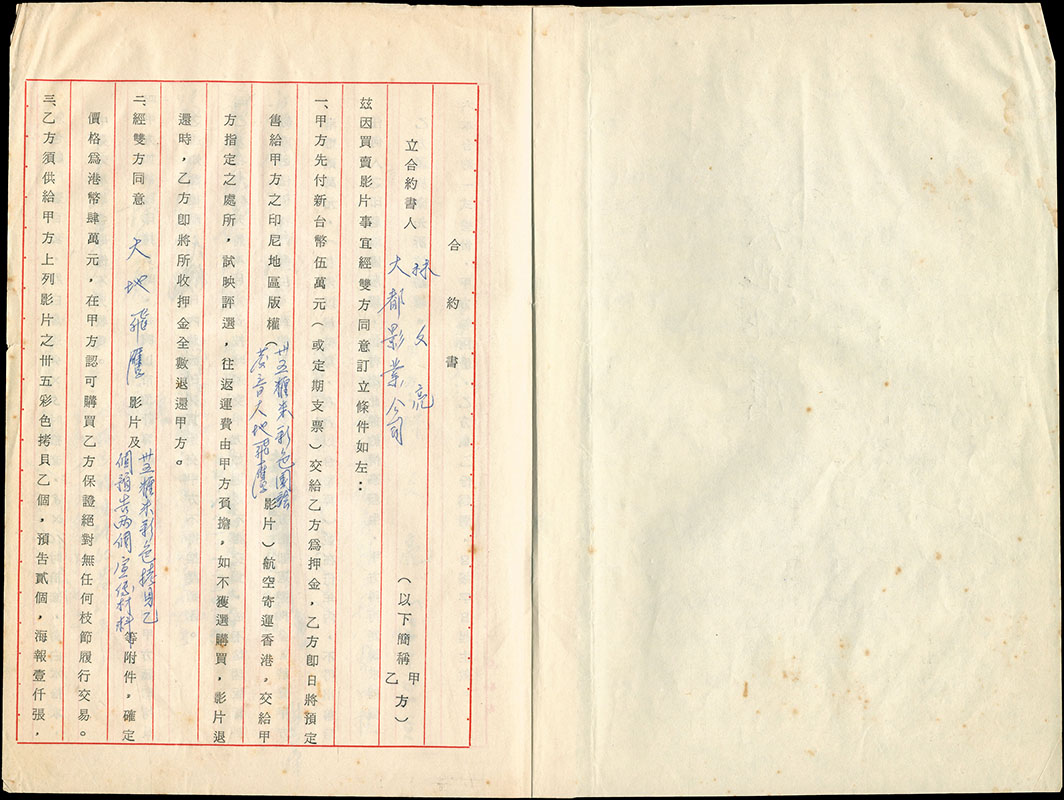 合約書
立合約書人 林文亮 大都影業公司 (以下簡稱甲乙方)
玆因買賣影片事宜經雙方同意訂立條件如左：
一、甲方先付新台幣伍萬元(或定期支票)交給乙方爲押金，乙方卽日將預定
售給甲方之印尼地區版權(卅五糎米彩色國語 大地飛鷹 影片)航空寄運香港，交給甲
方指定之處所，試映評選，往返運費由甲方負擔，如不獲選購買，影片退
還時，乙方卽將所收押金全數退還甲方。
二、經雙方同意 大地飛鷹 影片及 卅五糎米彩色拷貝乙個預告兩個宣傳材料 等附件，確定
價格爲港幣肆萬元，在甲方認可購買乙方保證絕對無任何枝節履行交易。
三、乙方須供給甲方上列影片之卅五彩色拷貝乙個，預告貳個，海報壹仟張，